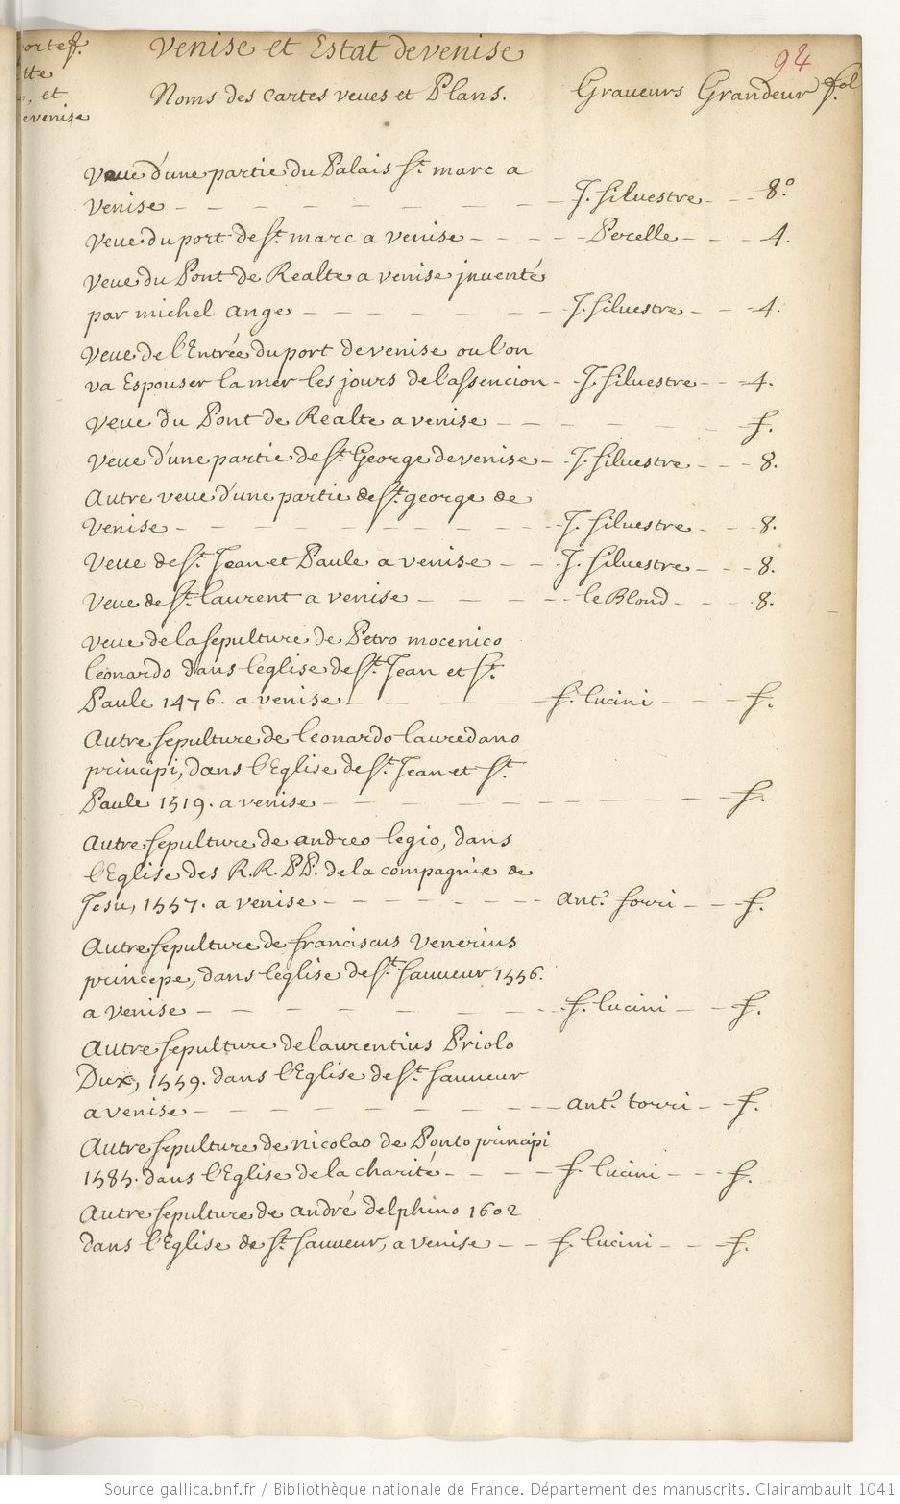 ortef.
tte
, et
evenise
Venise et Estat de venise
94
Noms des Cartes veues et Plans. Graveurs Grandeur fol.
Veue d'une partie du Palais St. marc a
Venise - - - - - - - - J. Silvestre - - 8°
Veue du port de St. marc a venise - - - - Perelle - - - 4.
Veue du Pont de Realte a venise jnventé
par michel ange - - - - - - J. Silvestre - - 4.
Veue de l'Entrée du port de venise ou l'on
va Espouser la mer les jours de l'assencion - J. Silvestre - - 4.
Veue du Pont de Realte a venise - - - - - - f.
Veue d'une partie de St. George de venise - J. Silvestre - - - 8.
Autre veue d'une partie de St. george de
Venise - - - - - - - - - J. Silvestre - - 8.
Veue de St. Jean et Paule a venise - - J. Silvestre - - - 8.
Veue de St. laurent a venise - - - - le Blond - - - 8.
Veue de la sepulture de Petro mocenico
leonardo dans leglise de St. Jean et St.
Paule 1476. a venise - - - - - f. lucini - - - f.
Autre sepulture de leonardo lauredano
principi, dans l'Eglise de St. Jean et St.
Paule 1519. a venise - - - - - - - - - f.
Autre sepulture de andreo legio, dans
l'Eglise des R.R. PP. de la compagnie de
Jesu, 1557. a venise - - - - - - - ant.° forri - - f.
Autre sepulture de franciscus Venerius
princepe, dans leglise de St. Sauveur 1556.
a venise - - - - - - - - f. lucini - - f.
Autre sepulture de laurentius Priolo
Dux, 1559. dans l'Eglise de St. Sauveur
a venise - - - - - - - - - ant.° torri - - f.
Autre sepulture de nicolao de Ponto principi
1585. dans l'Eglise de la charité - - - - f. lucini - - - f.
Autre sepulture de andré delphino 1602
dans l'Eglise de St. Sauveur, a venise - - f. lucini - - - f.
Source gallica.bnf.fr / Bibliothèque nationale de France. Département des manuscrits. Clairambault 1041